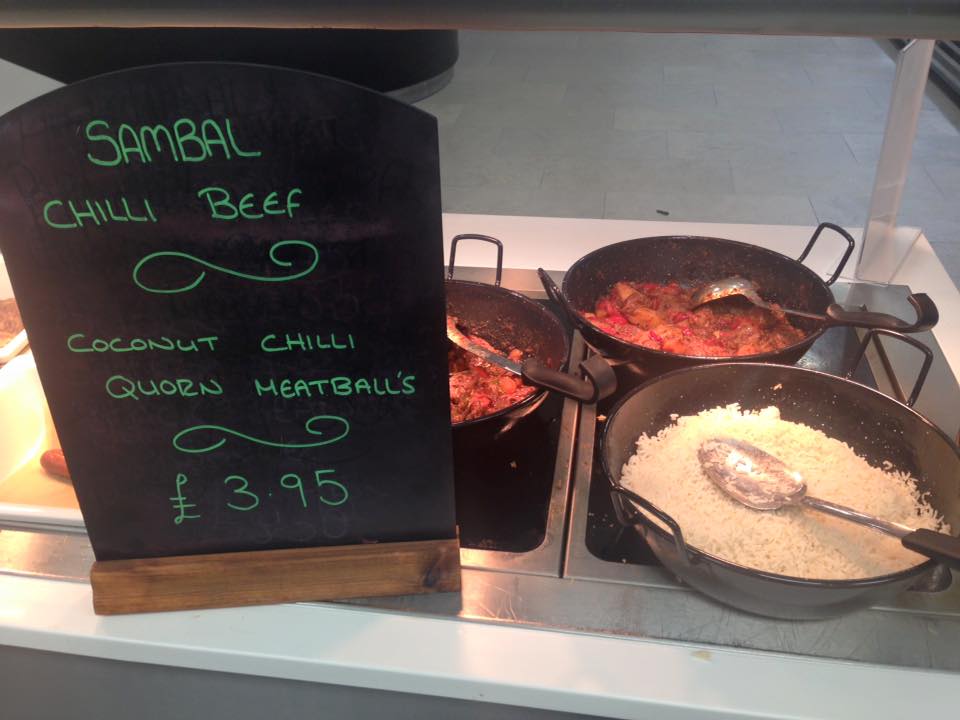 SAMBAL
CHILLI BEEF
COCONUT CHILLI
QUORN MEATBALL'S
£3.95